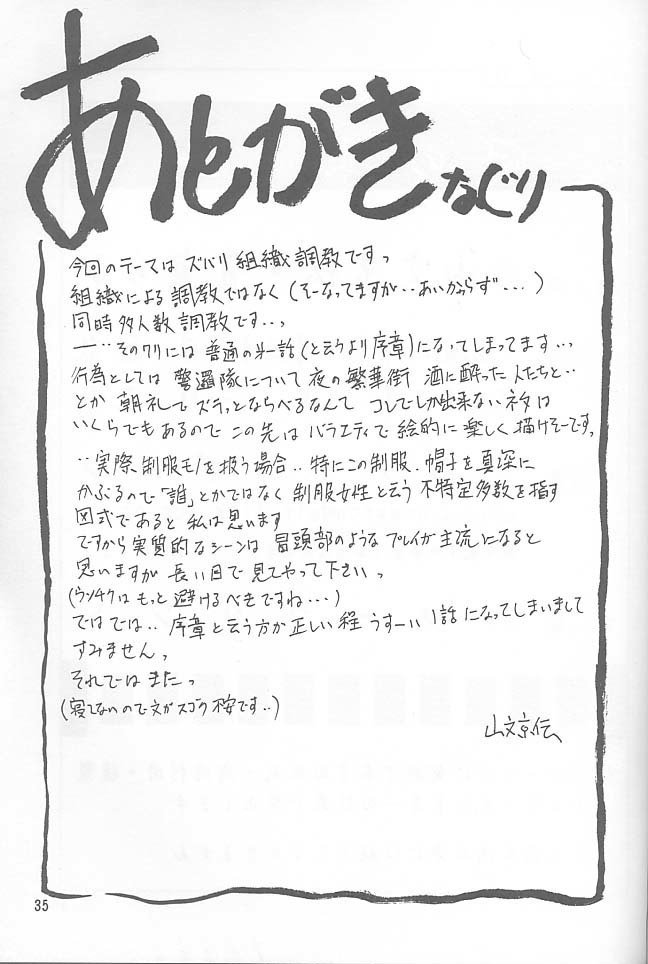 あとがきなぐり
今回のテーマは ズバリ 組織調教ですっ
組織による 調教ではなく (そーなってますが‥あいかわらず…)
同時多人数調教です‥っ
一‥そのワリには 普通の第一話(と云うより序章)になってしまってます‥っ
行為としては 警邏隊について 夜の繁華街 酒に酔った人たちと‥
とか 朝礼で ズラっとならべるなんて コレでしか出来ないネタは
いくらでもあるので この先は バラエティで絵的に楽しく描けそーですっ
‥実際 制服モノを扱う場合‥特にこの制服、帽子を真深に
かぶるので「誰」とかではなく 制服女性と云う 不特定多数を指す
図式であると 私は思います
ですから実質的なシーンは 冒頭部のような プレイが主流になると
思いますが 長い目で見てやって下さいっ
(ウンチクはもっと避けるべきですね…)
ではでは‥ 序章と云う方が正しい程 うすーい 1話になってしまいまして
すみません。
それでは またっ
(寝てないので文がスゴク不安です‥)
山文京伝
35